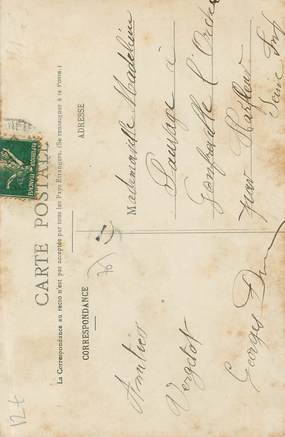 CARTE POSTALE
La Correspondance au recto n'est pas acceptée par tous les Pays Étrangers. (Se renseigner à la Poste.)
CORRESPONDANCE
ADRESSE
Amitiés
Georges
Mademoiselle Madeleine
Sauvage à
Gonfreville l'Orcher
par Harfleur
Seine Inf